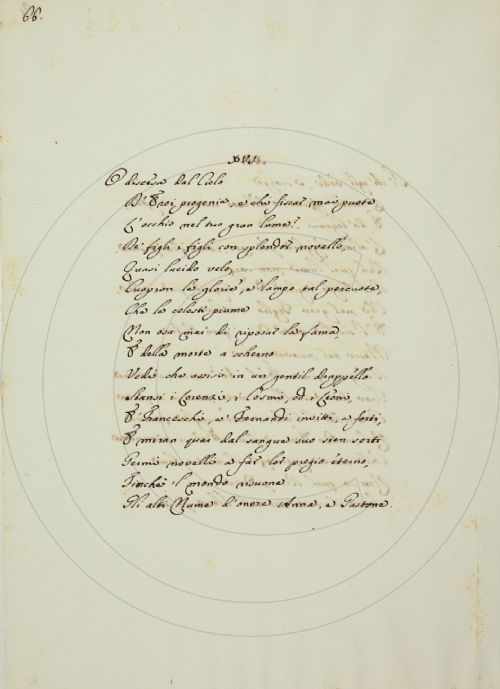 66.
XVI.
O discesa dal Cielo
D'Eroi progenie, e chi fissar mai puote
L'occhio nel tuo gran lume?
De' figli i figli con splendor novello,
Quasi lucido velo,
Cuopron le glorie, e lampo tal percuote,
Che le celesti piume
Non osa mai di riposar la fama,
E della morte a scherno
Vede che assisi in un gentil drappello
Stansi i Lorenzi, i Cosmi, ed i Leoni,
E Franceschi, e Fernandi invitti, e forti,
E miran quai dal sangue suo sien sorti
Germi novelli a far lor pregio eterno,
Finchè il mondo risuone
Gli alti Nume d'onore Anna, e Gastone.